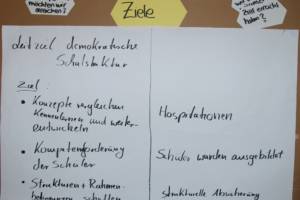 möchten wir
erreichen?
Ziele
Ziel erreicht
haben?
Leitziel demokratische
Schulstruktur
Ziel:
• Konzepte vergleichen
kennenlernen und weiter
entwickeln
• Kompetenzförderung
der Schüler
• Strukturen + Rahmen-
schaffen
Hospitationen
Schüler werden ausgebildet
strukturelle Absicherung